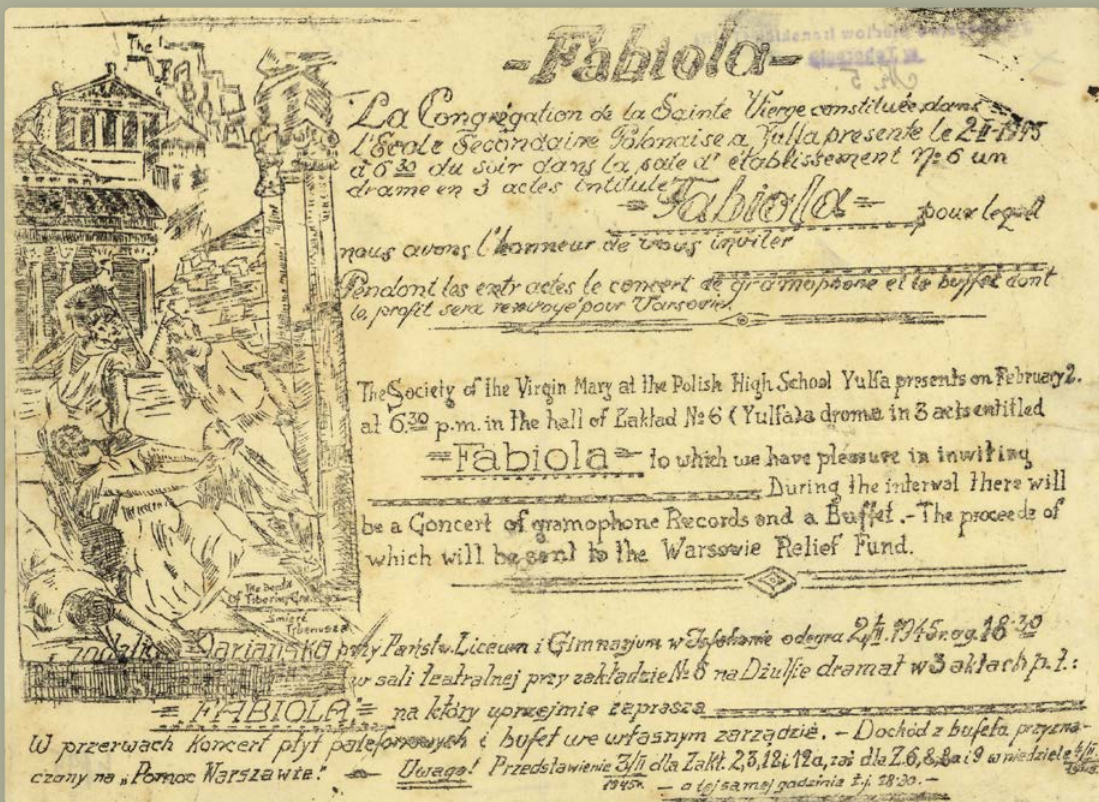 -Fabiola-
La Congrégation de la Sainte Vierge constituée dans
l'Ecole Secondaire Polonaise a Julfa presente le 2-II-1945
à 6 30 du soir dans la sale d' etablissement No 6 un
drame en 3 actes intitulé
=Fabiola= pour leqel
nous avons l'honneur de vous inviter
Pendont les entr actes le concert de gramophone et le buffet dont
le profit sera renvoyé pour Varsovie.
The Society of the Virgin Mary at the Polish High School Yulfa presents on February 2.
at 6.30 p.m. in the hall of Zakład No 6 (Yulfa)a drama in 3 acts entitled
=Fabiola= to which we have pleasure in inwiting
During the interwal there will
be a Concert of gramophone Records and a Buffet.-The proceede of
which will be sent to the Warsowie Relief Fund.
The Death
of Tiberius
Śmierć
Tyberiusza
Sodalicja Mariańska przy Państw. Liceum i Gimnazjum w Isfahanie odegra 2/II.1945r. o g. 18 30
w sali teatralnej przy zakładzie No 6 na Dżulfie dramat w 3 aktach p.t.:
="FABIOLA"= na który uprzejmie zaprasza
W przerwach Koncert płyt patefonowych i bufet we własnym zarządzie. - Dochód z bufetu przezna-
czony na „Pomoc Warszawie." Uwaga! Przedstawienie 3/II 1945r. dla Zakł. 2,3,12 i 19a, zaś dla Z.6,8,8a i 9 w niedzielę 4/II
- o tej samej godzinie t.j. 18.30. -